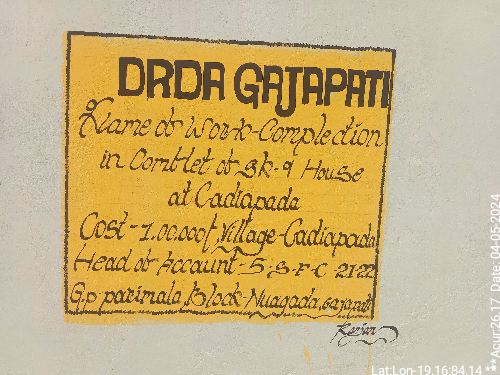 DRDA GAJAPATI
Name of Work-Complection
in Comblet of Sk-9 House
at Cadiapada
Cost-1.00.000/ Village-Cadiapada
Head of Accaunt-5.S.F.C-21-22
G.p parimala, Block-Nuagada, Gajapati
Ranjan
Lat:Lon-19,16:84,14**
**Acur26.17 Date:04/05/2024